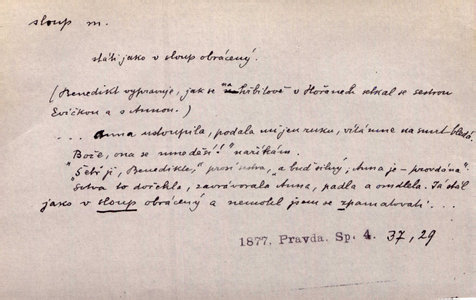 sloup m.
státi jako v sloup obrácený.
(Benedikt vypravuje, jak se na hřbitově v Hořanech setkal se sestrou
Evičkou a s Annou.)
. . . Anna ustoupila, podala mi jen ruku, vítá mne na smrt bledá.
Bože, ona se mne děsí!" naříkám.
"Šetř jí, Benedikte," prosí sestra, "a buď silný; Anna je – provdána".
Sotva to dořekla, zavrávorala Anna, padla a omdlela. Já stál
jako v sloup obrácený a nemohl jsem se zpamatovati . . .
1877. Pravda. Sp. 4. 37, 29